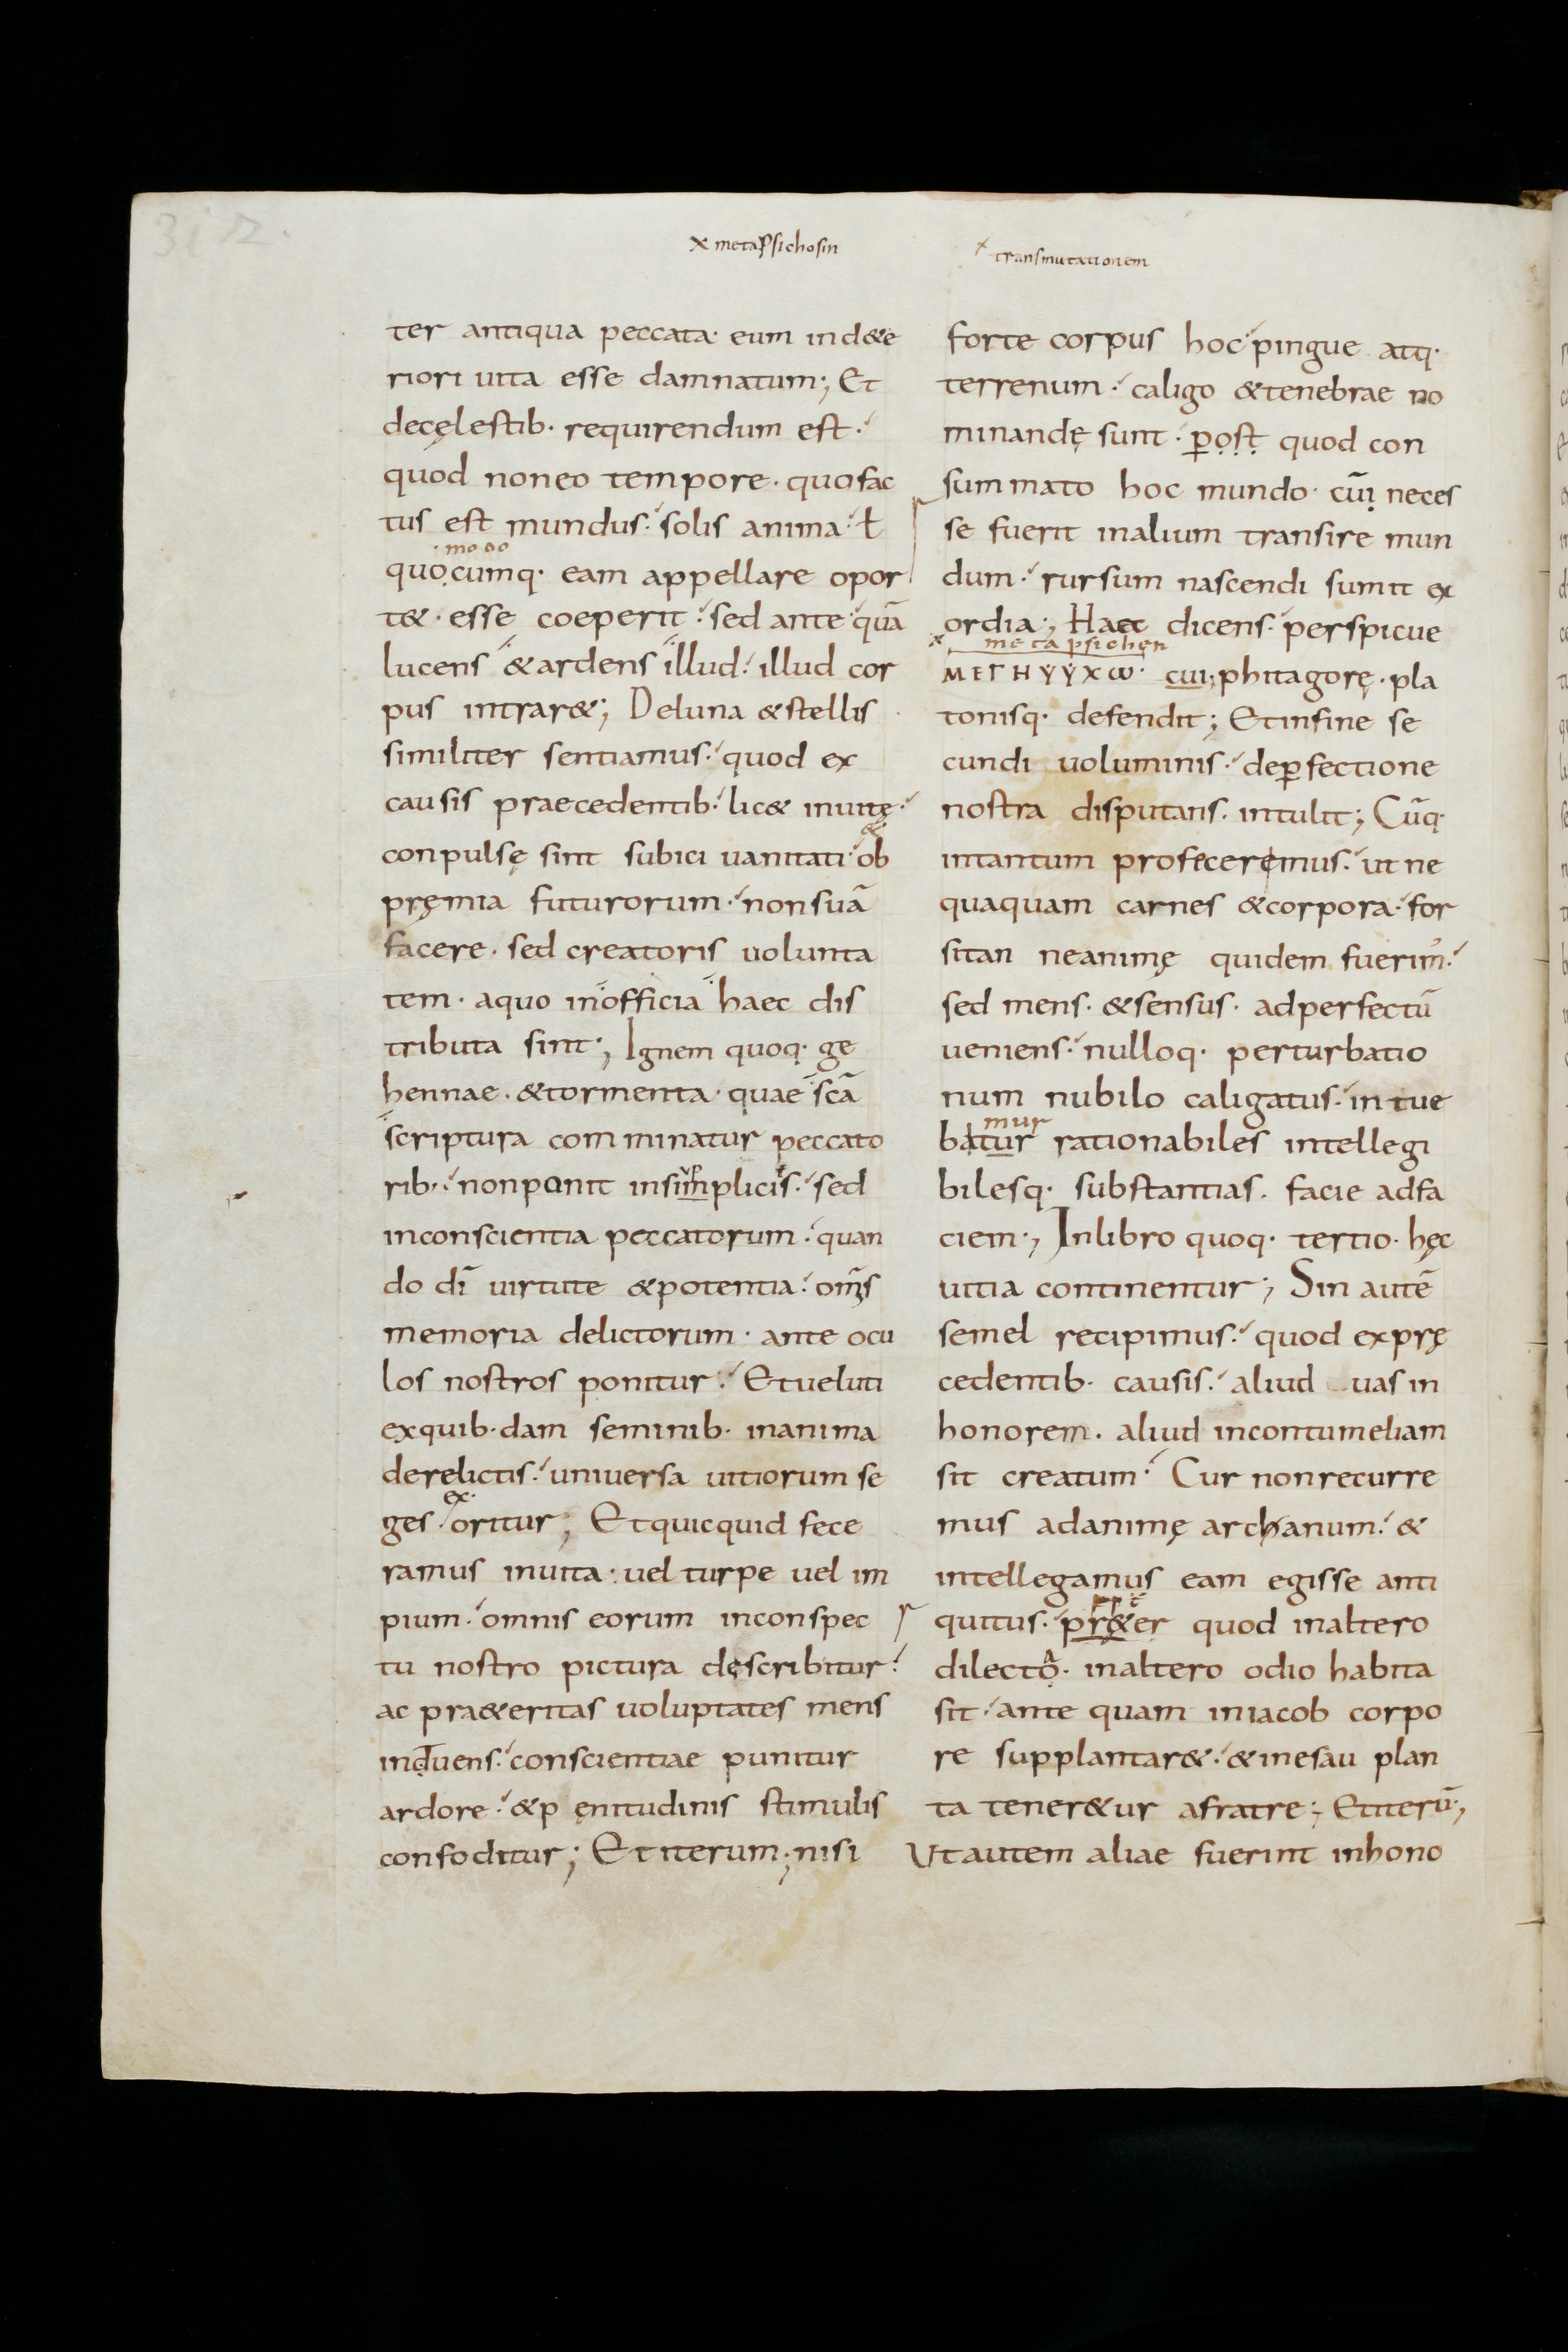 312.
x metapsichosin
x transmutationem
ter antiqua peccata· eum ind&e
riori uita esse damnatum; Et
decęlestib· requirendum est·
quod noneo tempore· quofac
tus est mundus· solis anima· ł
mo do
quocumq· eam appellare opor
t&· esse coeperit· sed ante quā
lucens &ardens illud· illud cor
pus intrar&; Deluna &stellis
similiter sentiamus· quod ex
causis praecedentib· lic& inuitę·
&
conpulsę sint subici uanitati ob
pręmia futurorum· nonsuā
facere· sed creatoris uolunta
tem· aquo inofficia haec dis
tributa sint; Ignem quoq· ge
hennae· &tormenta· quae scā
scriptura comminatur peccato
rib·· nonponit insimplicis· sed
inconscientia peccatorum· quan
do dī uirtute &potentia· om̄s
memoria delictorum· ante ocu
los nostros ponitur· Etueluti
exquib·dam seminib· inanima
derelictis· uniuersa uitiorum se
ex·
ges oritur; Etquicquid fece
ramus inuita· uel turpe uel im
pium· omnis eorum inconspec
tu nostro pictura describitur·
ac pra&eritas uoluptates mens
induens· conscientiae punitur
ardore· &p ęnitudinis stimulis
confoditur; Et iterum; nisi
forte corpus hoc pingue atq·
terrenum· caligo &tenebrae no
minandę sunt· post quod con
summato hoc mundo· cūi neces
se fuerit inalium transire mun
dum· rursum nascendi sumit ex
ordia; Haec dicens· perspicue
x metapsichen
ΜΕΓΗΥΥΧω· cui; phitagorę· pla
tonisq· defendit; Etinfine se
cundi uoluminis· deperfectione
nostra disputans· intulit; Cūq·
intantum profeceremus· ut ne
quaquam carnes &corpora· for
sitan neanimę quidem fuerim̓·
sed mens· &sensus· adperfectū
ueniens· nulloq· perturbatio
num nubilo caligatus· intue
mur
batur rationabiles intellegi
bilesq· substantias· facie adfa
ciem; Inlibro quoq· tertio· hęc
uitia continentur; Sin autē
semel recipimus· quod exprę
cedentib· causis· aliud uas in
honorem· aliud incontumeliam
sit creatum· Cur nonrecurre
mus adanimę archanum· &
intellegamus eam egisse anti
quitus· pr&er quod inaltero
dilecto· inaltero odio habita
sit· ante quam iniacob corpo
re supplantar&· &inesau plan
ta tener&ur afratre; Etiterū;
Ut autem aliae fuerint inhono